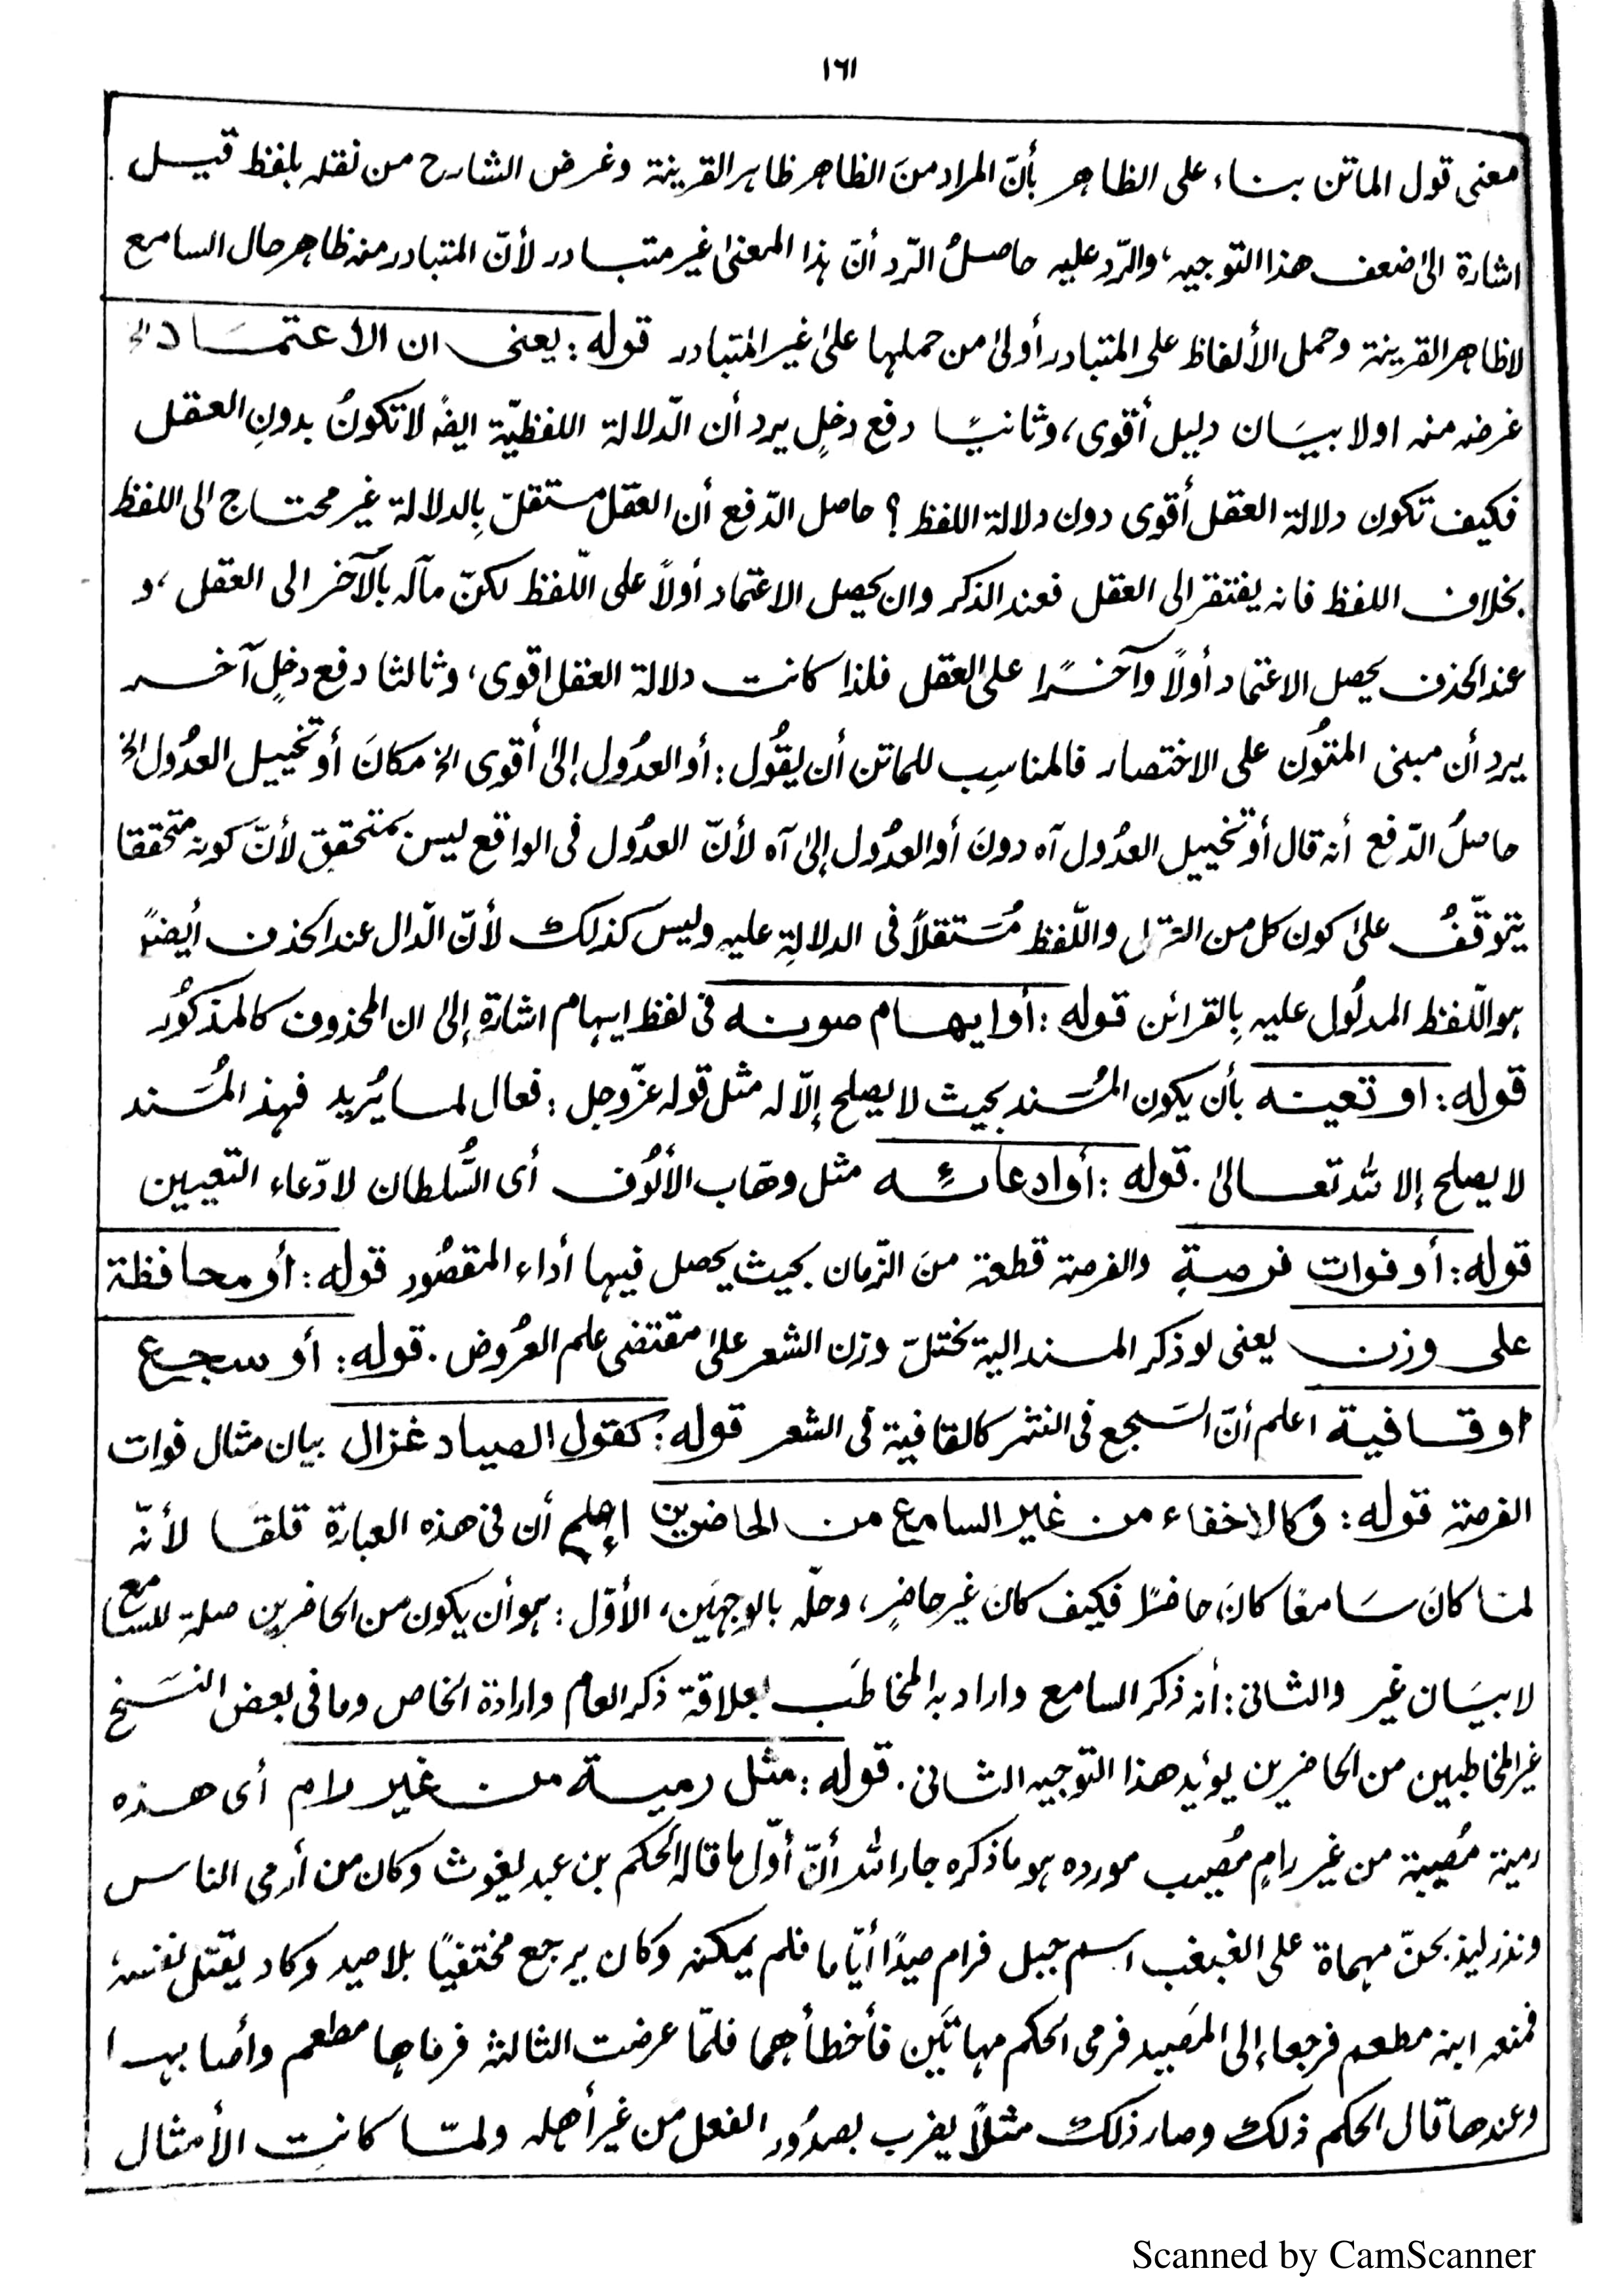 ١٦١
معنى قول الماتن بناء على الظاهر بأنّ المراد منَ الظاهر ظاهر القرينة وغرض الشارح من نقله بلفظ قيل
اشارة الى ضعف هذا التوجيه، والرّد عليه حاصلُ الرّد أنّ هذا المعنىٰ غير متبادر لأنّ المتبادر منه ظاهر حال السامع
لا ظاهر القرينة وحمل الألفاظ على المتبادر أولىٰ من حملها علىٰ غير المتبادر قوله: يعنى ان الاعتمَاد الخ
غرضه منه اولا بيَان دليل أقوى، وثانيًا دفع دخلٍ يرد أن الدّلالة اللفظيّة ايضًا لا تكونُ بدونِ العقل
فكيف تكون دلالة العقل أقوى دون دلالة اللفظ؟ حاصل الدّفع أن العقل مستقلّ بِالدلالة غير محتاج الى اللفظ
بخلاف اللفظ فانه يفتقر الى العقل فعند الذكر وان يحصل الاعتماد أولاً على اللّفظ لكنّ مآله بالآخر الى العقل، و
عند الحذف يحصل الاعتماد أولاً وآخرًا على العقل فلذا كانت دلالة العقل اقوى، وثالثا دفع دخلٍ آخر
يرد أن مبنى المتوُن على الاختصار فالمناسِب للماتن أن يقُول: أو العدُول إلىٰ أقوى الخ مكانَ أو تخييل العدُول الخ
حاصلُ الدّفع أنه قال أو تخييل العدُول آه دونَ أو العدُول إلىٰ آه لأنّ العدُول فى الواقع ليس بمتحقق لأنّ كونه متحققا
يتوقّفُ علىٰ كون كل من العقل واللّفظ مُستقلاً فى الدلالةِ عليه وليس كذلك لأنّ الدّال عند الحذف أيضًا
هو اللّفظ المدلُول عليه بِالقرائن قوله: أو ايهام صونه فى لفظ ايهام اشارة إلىٰ ان المحذوف كالمذكُور
قوله: او تعينه بأن يكون المُسَند بحيث لا يصلح إلّا له مثل قوله عزّ وجل: فعال لما يُريد فهذ المُسَند
لا يصلح إلا لله تعالىٰ. قوله: أو ادعائِه مثل وهّاب الألُوف أى السُّلطان لادّعاء التعيين
قوله: أو فوات فرصةٍ والفرصة قطعة منَ الزّمان بحيث يحصل فيها أداء المقصُود قوله: أو محافظة
على وزن يعنى لو ذكر المسند الية يختلّ وزن الشعر علىٰ مقتضى علم العرُوض. قوله: أو سجع
او قافية اعلم أنّ السَجع فى النثر كالقافية فى الشعر قوله: كقول الصياد غزال بيان مثال فوات
الفرصة قوله: وكالاخفاء من غير السامع من الحاضرين إعلم أن فى هذه العبارة قلقا لأنّه
لما كانَ سَامعًا كانَ حاضرًا فكيف كانَ غير حاضرٍ، وحلّه بالوجهَين، الأوّل: هو أن يكون من الحاضرين صلة للسامع
لا بيَان غير والثانى: أنه ذكر السامع واراد به المخاطَب بعلاقة ذكر العام وارادة الخاص وما فى بعض النسَخ
غير المخاطبين من الحاضرين يؤيد هذا التوجيه الثانى. قوله: مثل رمية من غير رام أى هذه
رمية مُصيبة من غير رامٍ مُصيب مورده هو ما ذكره جار الله أنّ أوّل ما قاله الحكم بن عبد يغوث وكان من أرمى الناس
ونذر ليذبحنّ مهماة على الغبغب اسم جبل فرام صيدًا أيّاما فلم يمكنه وكان يرجع مختفيًا بلا صيد وكاد يقتل نفسهٗ
فمنعه ابنه مطعم فرجعا إلى المَصيد فرمى الحكم مهاتَين فأخطأهما فلمّا عرضت الثالثة فرماها مطعم وأصابها
وعندها قال الحكم ذلك وصار ذلك مثلاً يضرب بصدُور الفعل من غير أهله ولمّا كانت الأمثال
Scanned by CamScanner